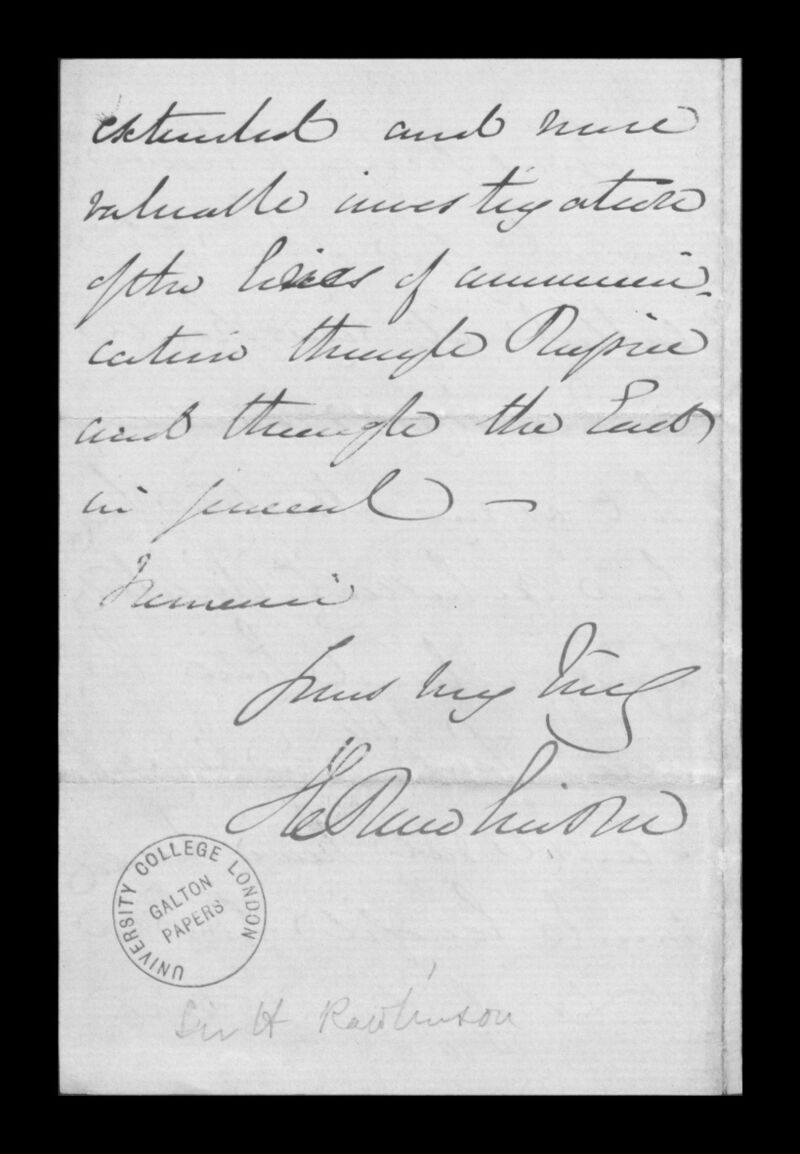 extended and more
valuable investigation
of the lines of communi-
cation through Russia
and through the East
in general —
I remain
Yours very truly
HCRawlinson
UNIVERSITY COLLEGE LONDON
GALTON
PAPERS
Sir H Rawlinson